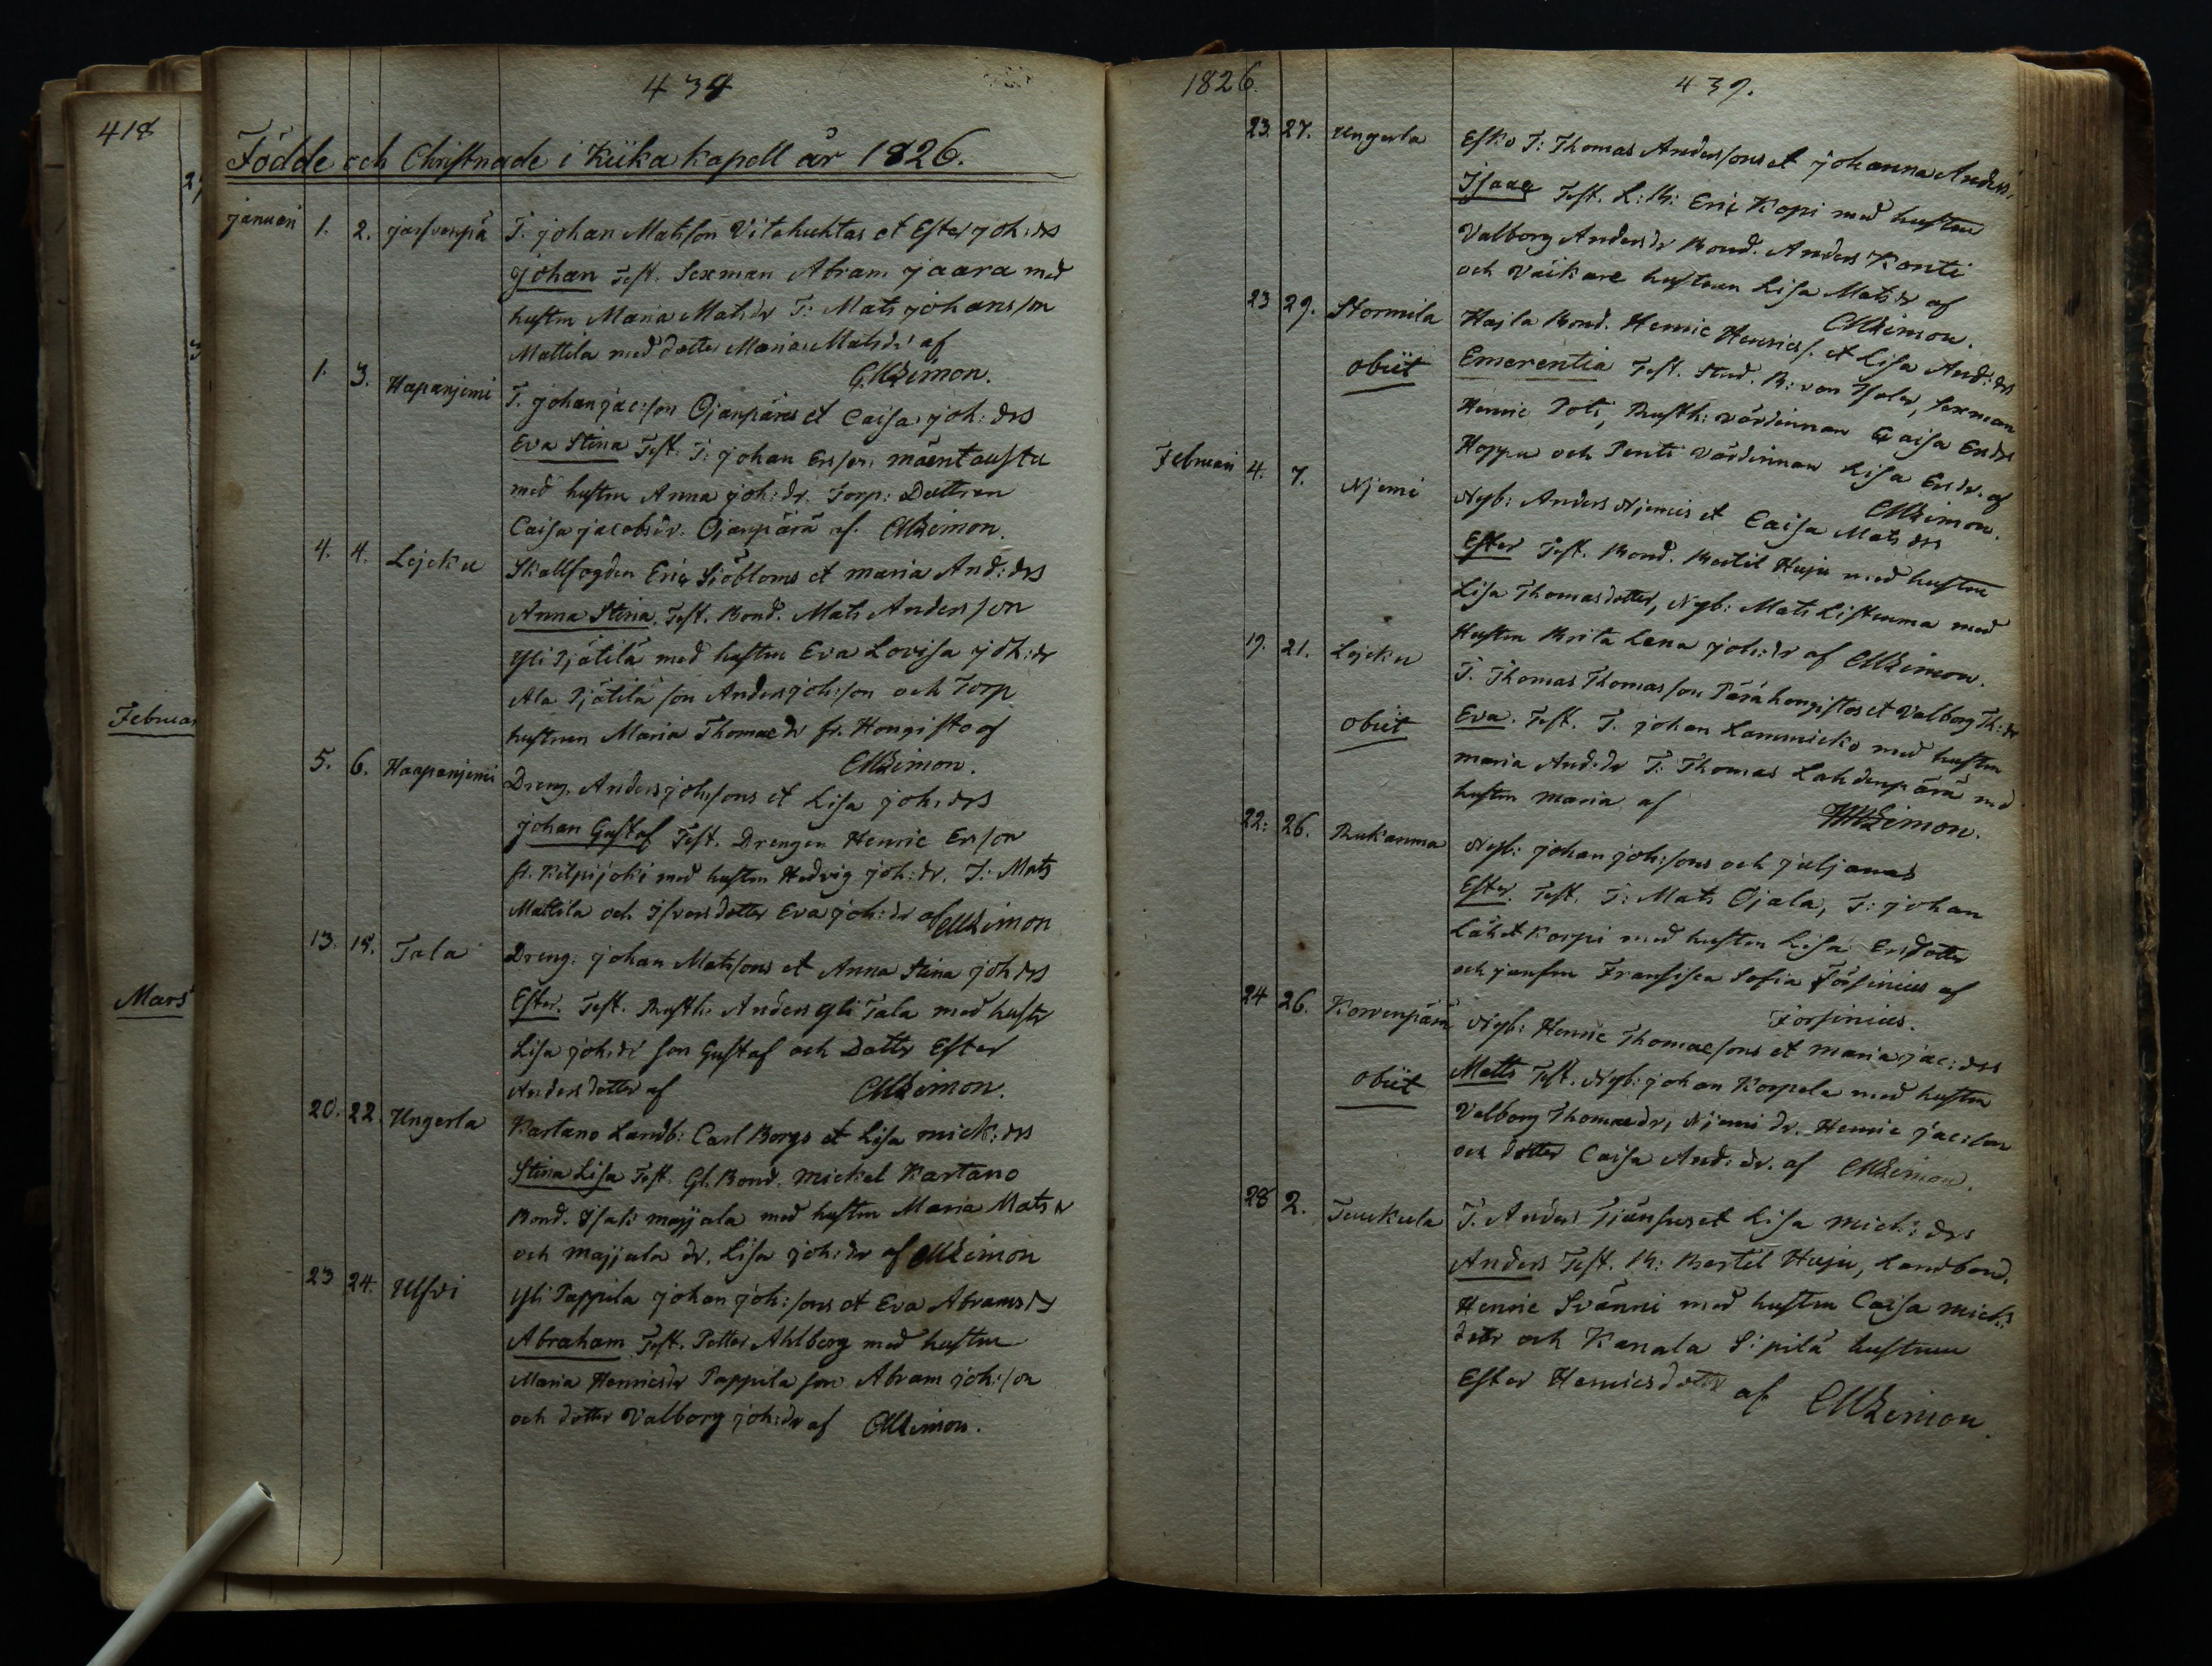 418
Februar
Mars
434
Födde och Christnade i Kiika kapell år 1826.
Januari 1. 2. Jarfvenpä T. Johan Matsson Vitahuhtas et Ester Joh:drs
Johan Test. Sexman Abram Jaara med
hustru Maria Matsdr T: Mats Johansson
Mattila med dotter Maria Matsdr af
G. Msimon.
1. 3. Hapanjemi T. Johan Jac:son Ojanpäres et Caisa Joh:drs
Eva Stina Test. T: Johan Ersson mäentausta
med hustru Anna Joh:dr. Torp: Dottren
Caisa Jacobsdr. Ojanpärä af.
4. 4. Lejcku Skallfogden Eric Sjöbloms et Maria And:drs
Anna Stina. Test. Bond. Mats Andersson
Yli Pjätilä med hustru Eva Lovisa Joh:dr
Ala Pjätilä son Anders Joh:son och Torp
hustrun Maria Thomaedr fr. Hongisto af
5. 6. Haapanjemi Dreng. Anders Joh:sons et Lisa Joh:drs
Johan Gustaf Test. Drengen Henric Ersson
fr. Kilpijoki med hustru Hedvig Joh:dr. T: Mats
Mattila och dotter Eva Joh:dr af
13. 15. Tala Dreng: Johan Matssons et Anna Stina Joh drs
Ester. Test. Rusth: Anders Yli Tala med hustr
Lisa Joh:dr son Gustaf och Dottr Ester
Anders dotter af
20. 22. Ungerla Kartano Landb: Carl Borgs et Lisa Mick:drs
Stina Lisa Test. Gl. Bond. Mickel Kartano
Bond. Isak Majjala med hustru Maria Mats dr
och Majjala dr. Lisa Joh:dr af
23 24. Ulfvi Yli Pappila Johan Joh:sons et Eva Abrams dr
Abraham Test. Petter Ahlberg med hustru
Maria Henricsdr Pappila son Abram Joh:son
och dotter Valborg Joh:dr af
1826. 439.
23. 27. Ungerla Esko T: Thomas Anderssons et Johanna Anders:
Isaac Test. L:B: Eric Kopi med hustru
Valborg Andersdr Bond. Anders Konti
och Väikare hustrun Lisa Matsdr af
23 29. Stormila Hajla Bond. Henric Henrics. et Lisa And:drs
obiit Emerentia Test. Stud. B: von Sexman
Henric Poti, Rusth: värdinnan Caisa Ersdr
Hoppu och Penti värdinnan Lisa Ersdr. af
Februari 4. 7. Njemi Nyb: Anders Njemis et Caisa Mats drs
Ester Test. Bond. Bertil Huju med hustru
Lisa Thomasdotter, Nyb: Mats Listenma med
Hustru Brita Lena Joh:dr af
19. 21. Lejcku T. Thomas Thomasson Pärähongistos et Valborg Th:dr
obiit Eva. Test. T. Johan Lammicko med hustru
Maria And:dr T: Thomas Lahdenpärä med
hustru Maria af
22. 26. Ruckanma Nyb: Johan Joh:sons och Juljanas
Ester. Test. T: Mats Ojala, T: Johan
Lähtkorpi med hustru Lisa Ersdotter
och Jungfru Fransisca Sofia Forsinius af
Forsinius.
24 26. Korvenpää Nyb: Henric Thomaesons et Maria Jac:drs
obiit Matts Test. Nyb: Johan Korpela med hustru
Valborg Thomaedr, Njemi dr. Henric Jac:son
och dotter Caisa And:dr. af
28 2. Tuckula T. Anders et Lisa Mich:drs
Anders Test. B: Bertil Huju, Landbond.
Henric Svänni med hustru Caisa Mich:
dotr och Kanala Sipilä hustrun
Ester Henricsdottr af